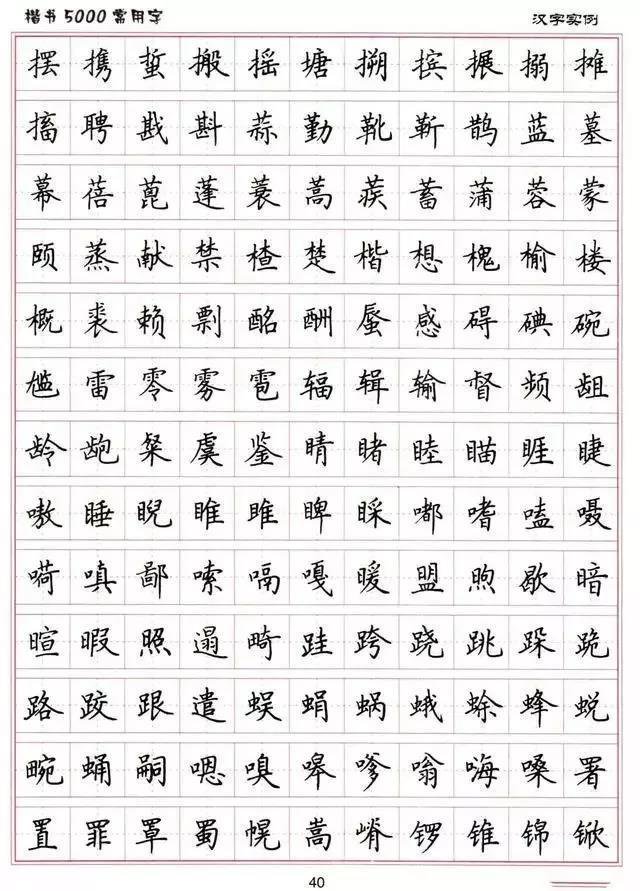 楷书5000常用字
汉字实例
摆携蜇搬摇塘搠摈搌搦摊
搐聘戡斟蒜勤靴靳鹊蓝墓
幕蓓蓖蓬蓑蒿蒺蓄蒲蓉蒙
颐蒸献禁楂楚楷想槐榆楼
概裘赖剽酩酬蜃感碍碘碗
尴雷零雾雹辐辑输督频龃
龄龅粲虞鉴睛睹睦瞄睚睫
嗷睡睨睢雎睥睬嘟嗜嗑嗫
嗬嗔鄙嗦嗝嘎暖盟煦歇暗
暄暇照遢畸跬跨跷跳跺跪
路跤跟遣蜈蜗蛾蜍蜂蜕
畹蛹嗣嗯嗅嗥嗲嗡嗨嗓署
置罪罩蜀幌嵩嵴锣锥锦锨
40